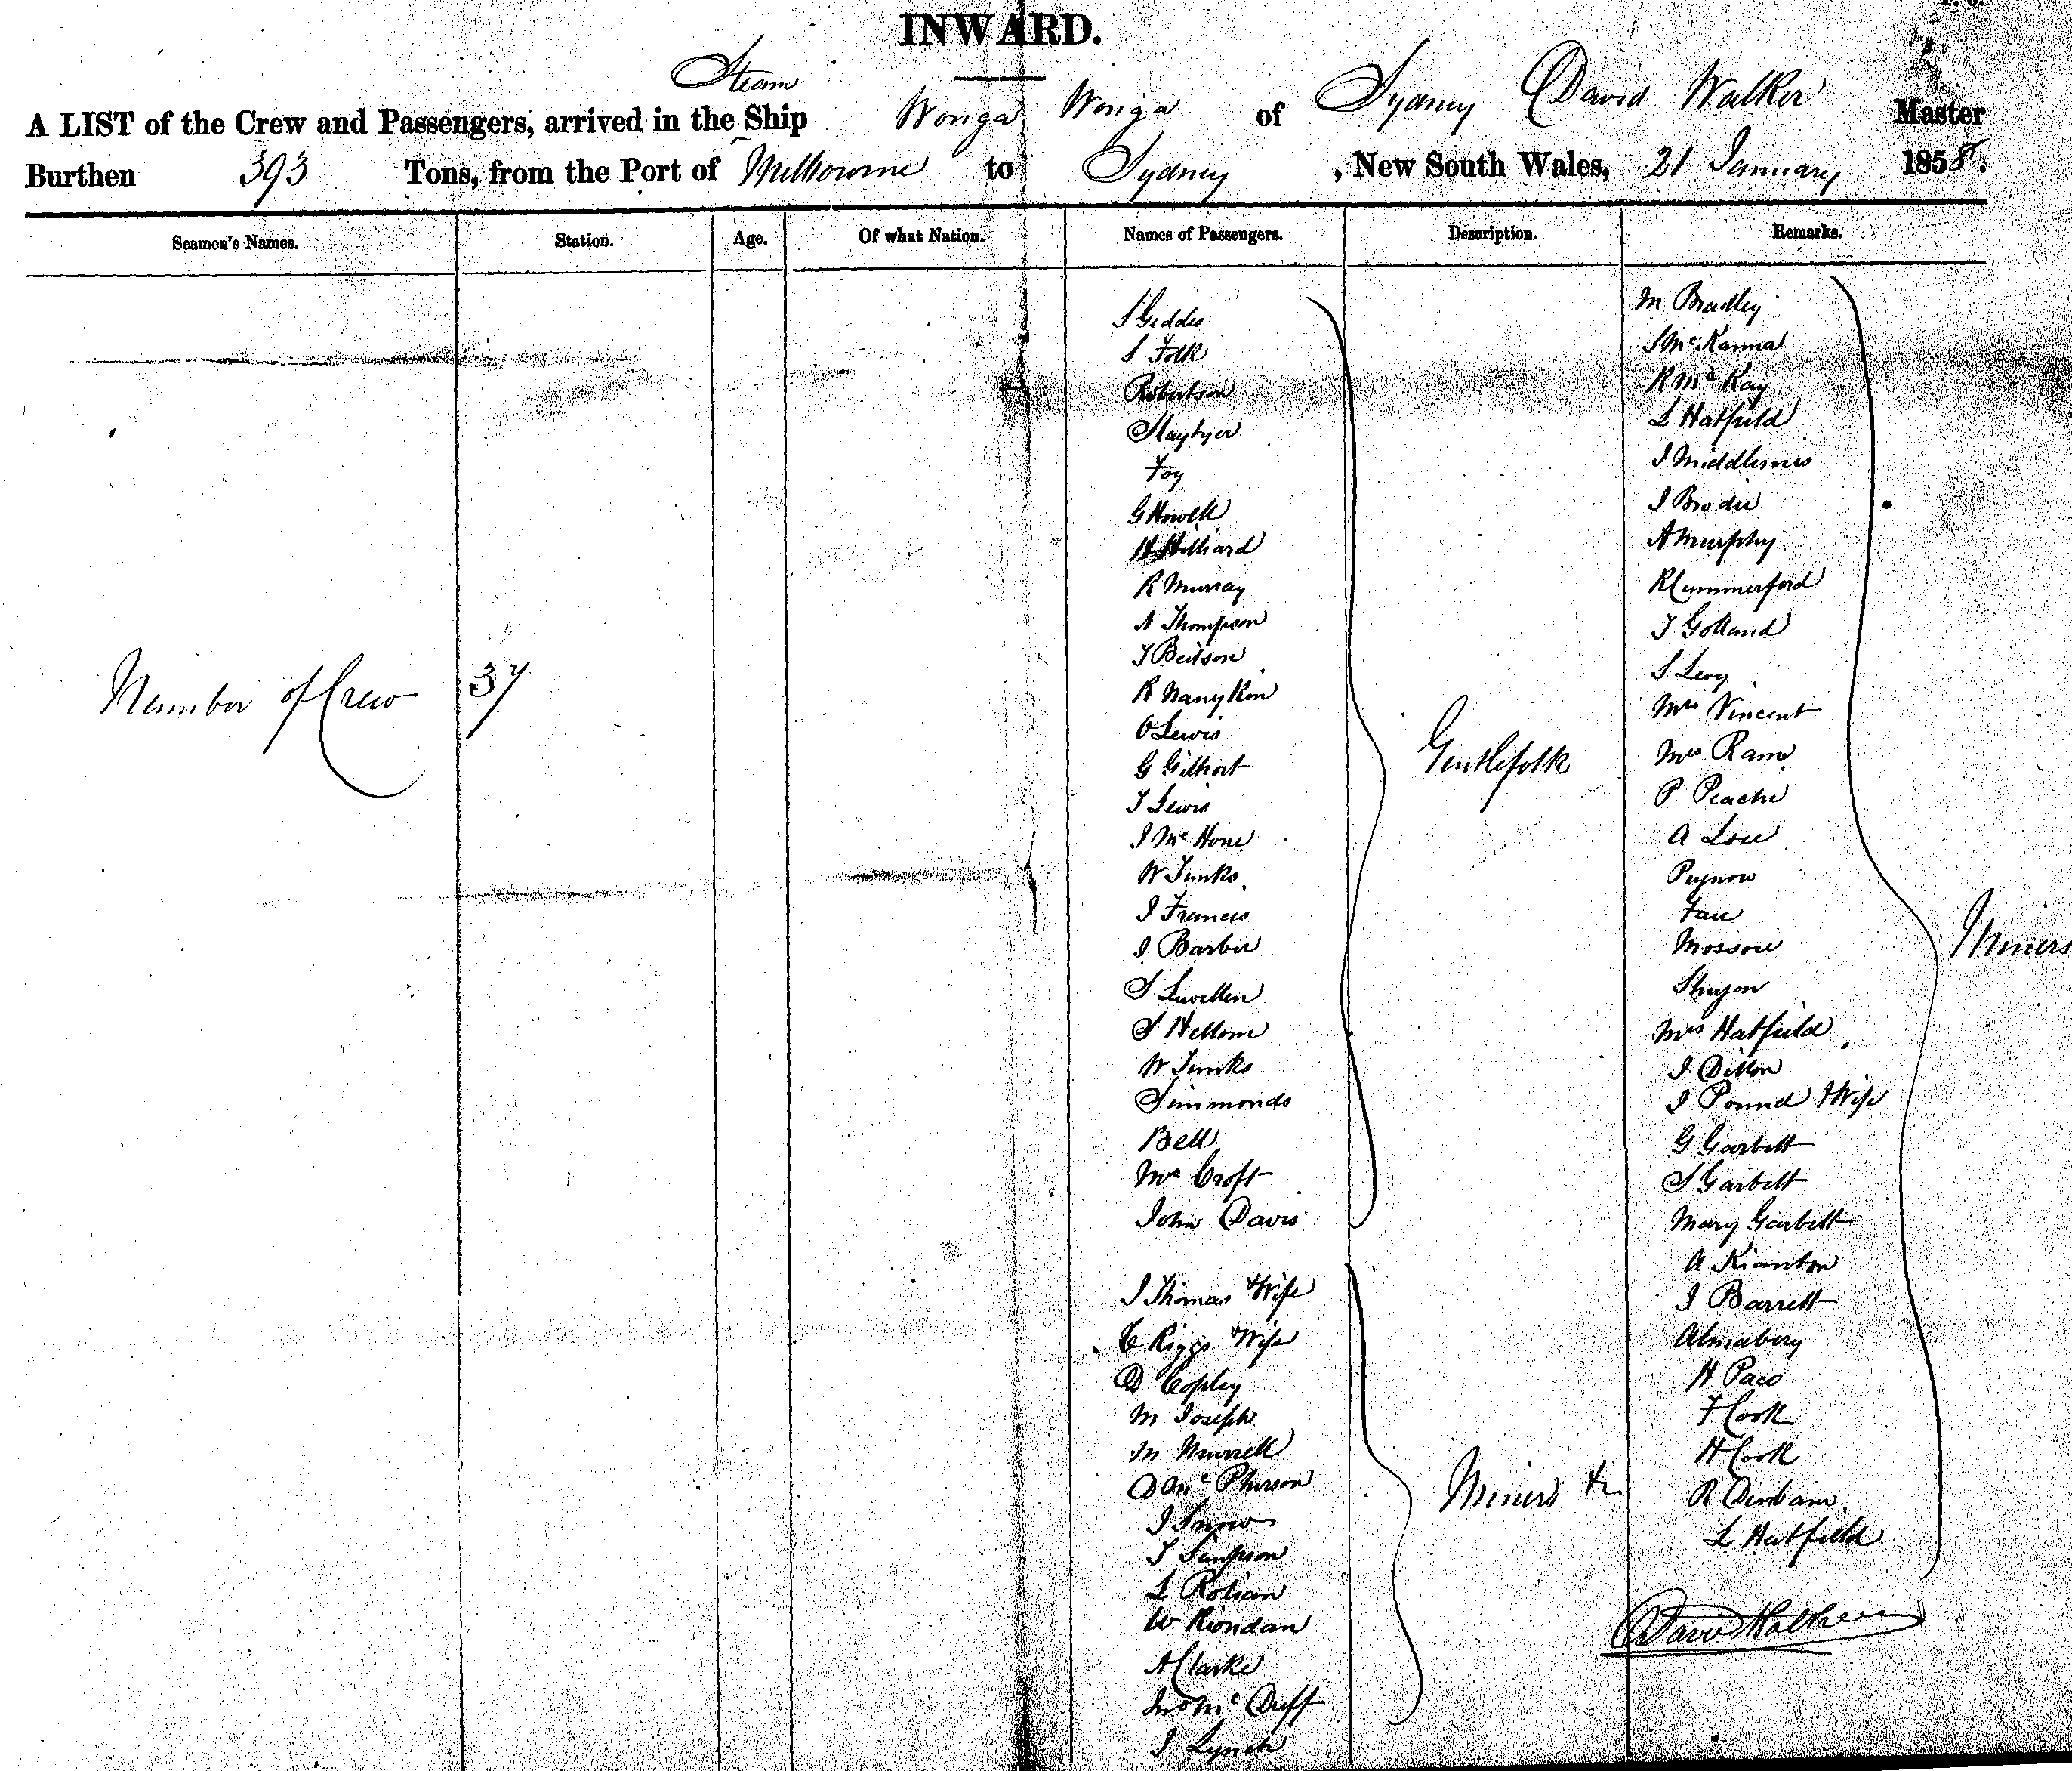 INWARD.
Steam
A LIST of the Crew and Passengers, arrived in the Ship Wonga Wonga of Sydney David Walker Master
Burthen 393 Tons, from the Port of Melbourne to Sydney, New South Wales, 21 January 1858.
Seamen's Names. Station. Age. Of what Nation. Names of Passengers. Description. Remarks.
Number of Crew 37
J Geddes
S Folk
Robertson
Foy
G Howell
H Hilliard
R Murray
A Thompson
J Beitson
R Nanykin
O Lewis
G Gilhort
J Lewis
J Mc Hone
W Jenks
J Francis
J Barber
S Lewellen
S Hellom
W Jenks
Simmonds
Bell
Mc Croft
John Davis
Gentlefolk
J Thomas & Wife
C Riggs & Wife
D Copley
M Joseph
M Murrell
D Mc Pherson
J Snow
J Simpson
L Rotian
W Riondan
A Clarke
Mc Duff
J Lynch
Miners &c
M Bradley
J McKanna
R Mc Kay
L Hatfield
J Middlemis
J Brodie
A Murphy
R Cummerford
J Golland
S Levy
Mrs Vincent
Mrs Ram
P Peache
A Lou
Pegnow
Fau
Mossou
Mrs Hatfield
J Dillon
J Pound & Wife
G Garbett
S Garbett
Mary Garbett
A Kianton
J Barrett
Almabery
H Paco
F Cook
H Cook
R Denham
L Hatfield
Miners
David Walker